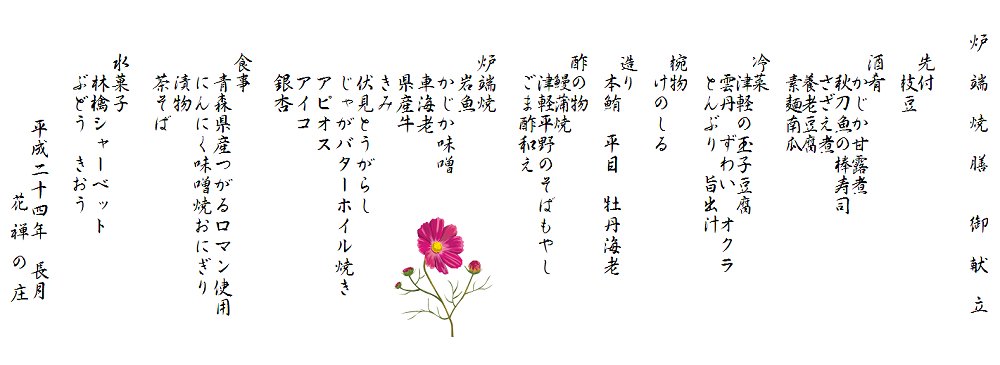 炉端焼膳　御献立
先付
枝豆
酒肴
かじか甘露煮
秋刀魚の棒寿司
さざえ煮
養老豆腐
素麺南瓜
冷菜
津軽の玉子豆腐
雲丹　ずわい　オクラ
とんぶり　旨出汁
椀物
けのしる
造り
本鮪　平目　牡丹海老
酢の物
鰻蒲焼
津軽平野のそばもやし
ごま酢和え
炉端焼
岩魚
かじか味噌
車海老
県産牛
きみ
伏見とうがらし
じゃがバターホイル焼き
アピオス
アイコ
銀杏
食事
青森県産つがるロマン使用
にんにく味噌焼おにぎり
漬物
茶そば
水菓子
林檎シャーベット
ぶどう　きおう
平成二十四年　長月
花禅の庄